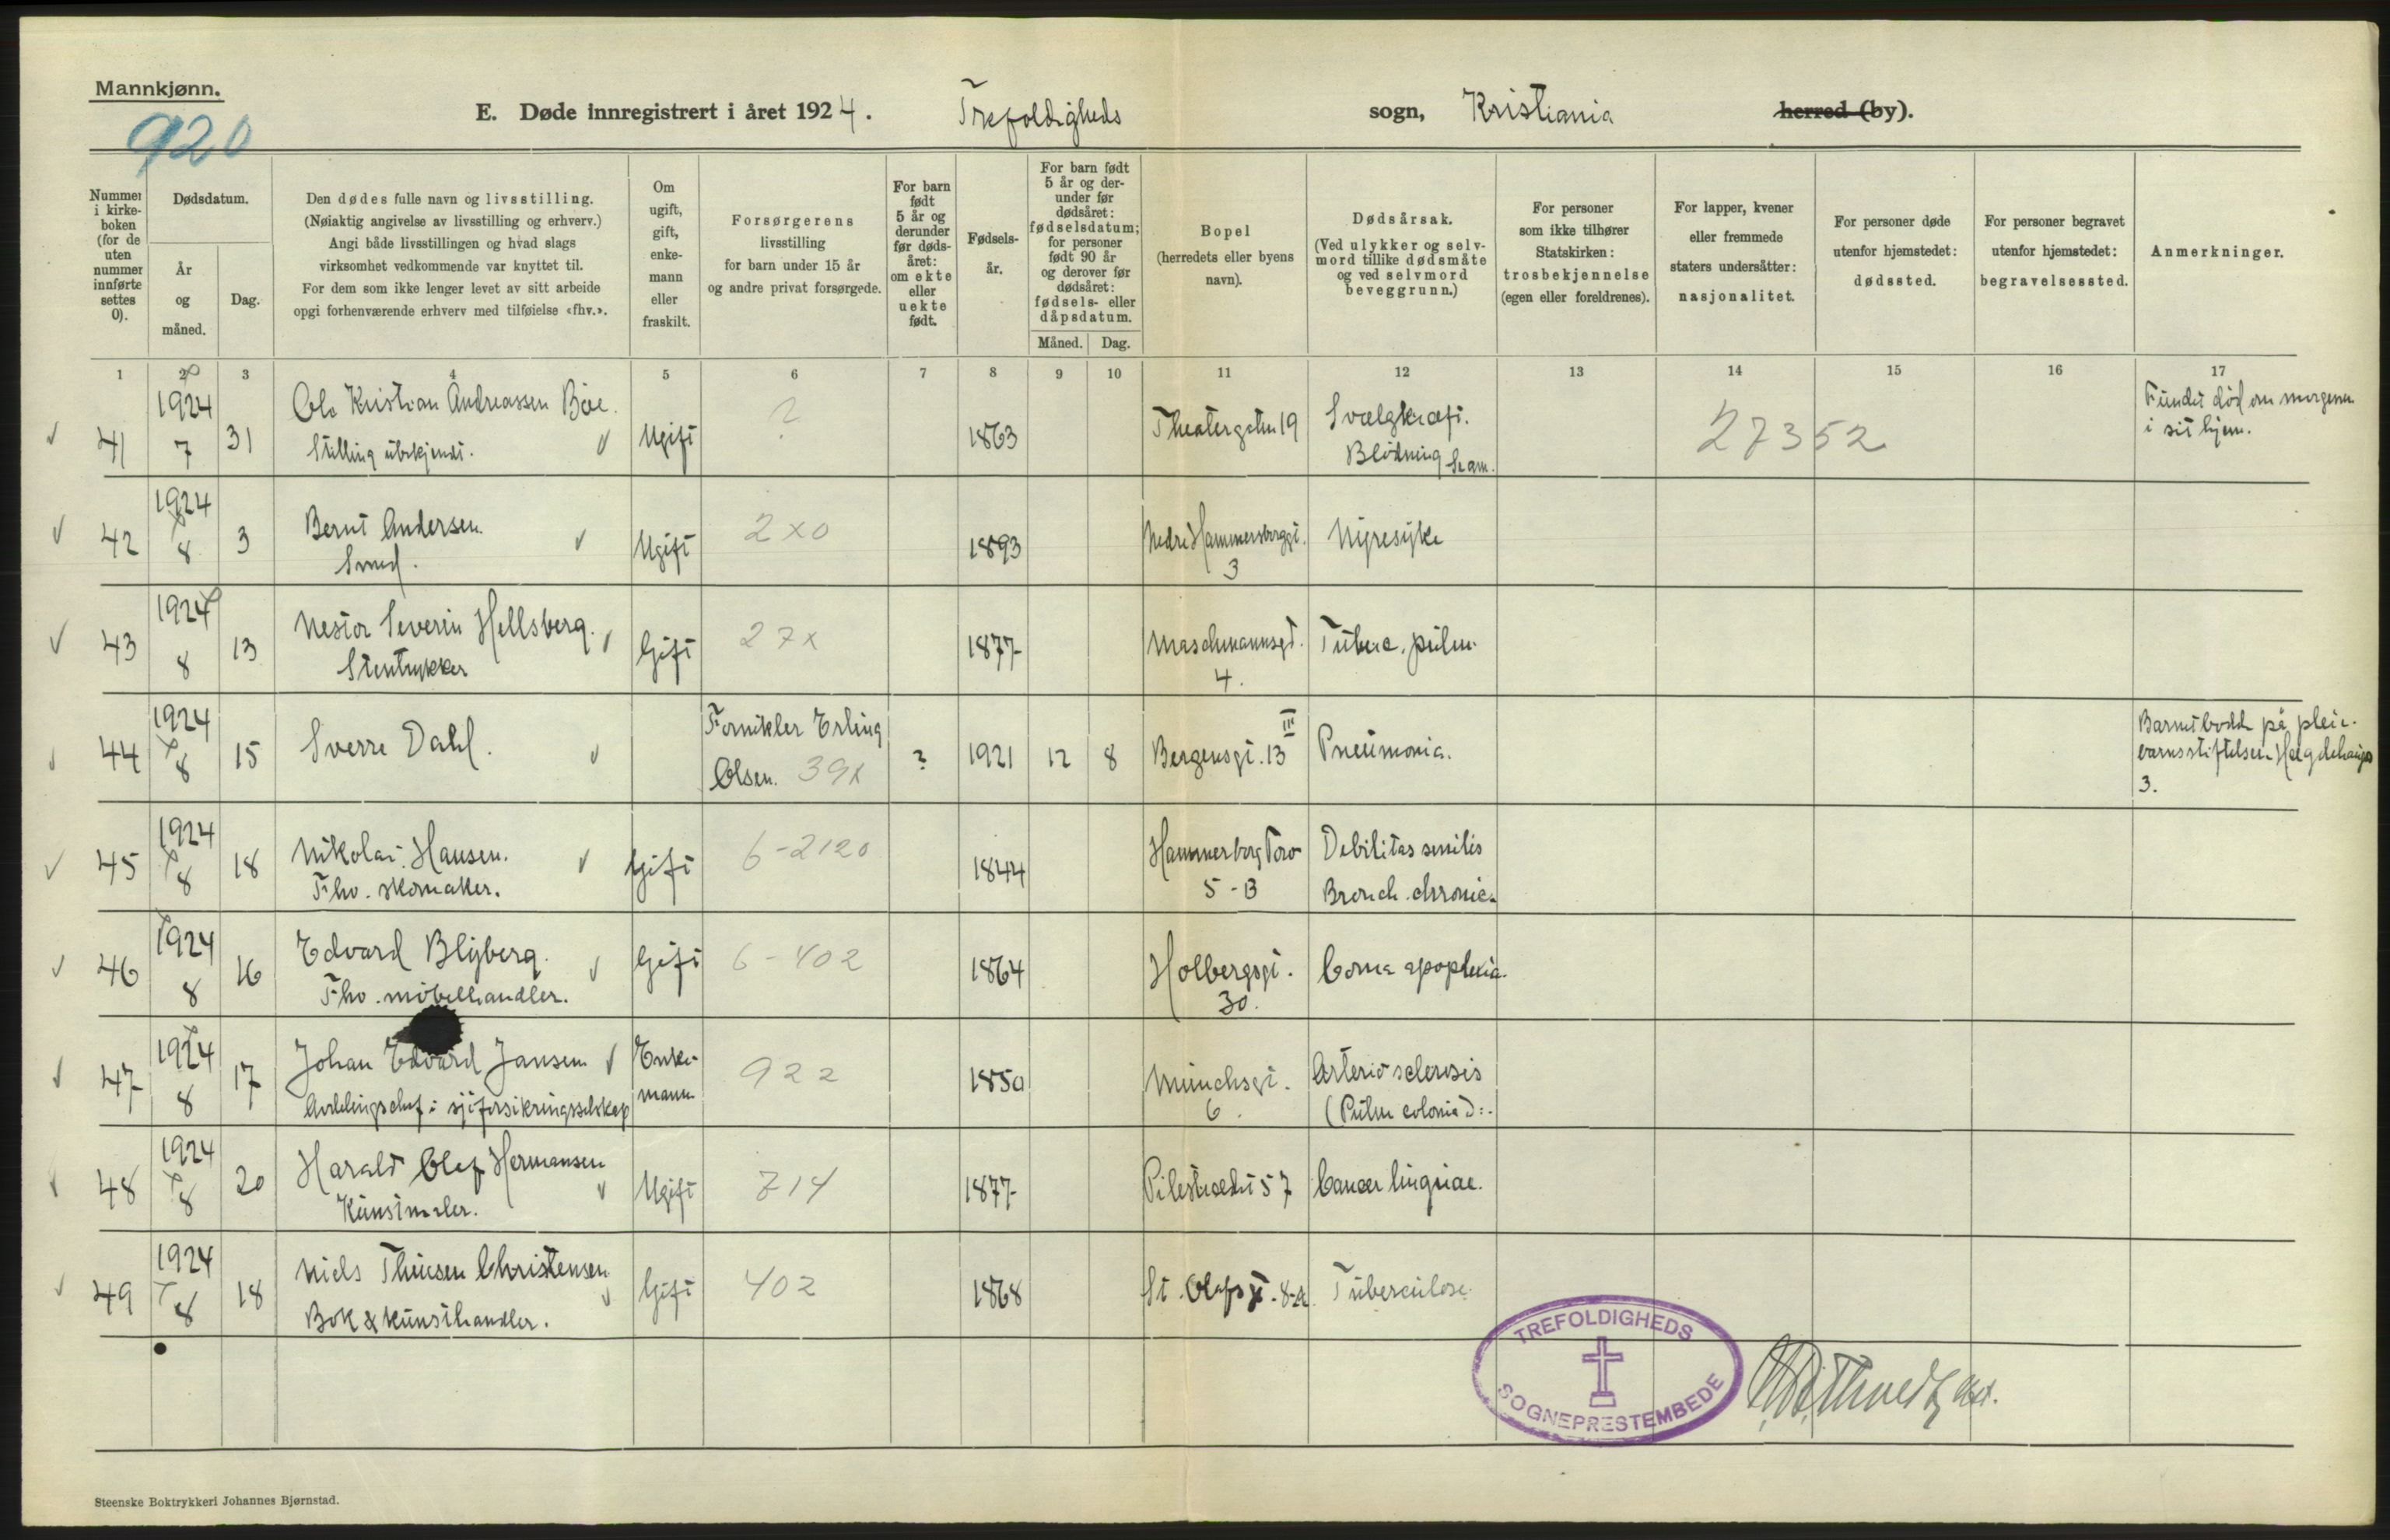 Mannkjønn.
920
E. Døde innregistrert i året 1924. Trefoldigheds sogn, Kristiania herred (by).
Nummer i kirkeboken (for de uten nummer innførte settes 0).
Dødsdatum.
År og måned.
Dag.
Den dødes fulle navn og livsstilling.
(Nøiaktig angivelse av livsstilling og erhverv.)
Angi både livsstillingen og hvad slags
virksomhet vedkommende var knyttet til.
For dem som ikke lenger levet av sitt arbeide
opgi forhenværende erhverv med tilføielse «fhv.».
Om ugift, gift, enkemann eller fraskilt.
Forsørgerens livsstilling for barn under 15 år og andre privat forsørgede.
For barn født 5 år og derunder før dødsåret: om ekte eller uekte født.
Fødselsår.
For barn født 5 år og derunder før dødsåret: fødselsdatum; for personer født 90 år og derover før dødsåret: fødsels- eller dåpsdatum.
Måned. Dag.
Bopel (herredets eller byens navn).
Dødsårsak.
(Ved ulykker og selvmord tillike dødsmåte og ved selvmord beveggrunn.)
For personer som ikke tilhører Statskirken: trosbekjennelse (egen eller foreldrenes).
For lapper, kvener eller fremmede staters undersåtter: nasjonalitet.
For personer døde utenfor hjemstedet: dødssted.
For personer begravet utenfor hjemstedet: begravelsessted.
Anmerkninger.
1 2 3 4 5 6 7 8 9 10 11 12 13 14 15 16 17
41 1924 7 31 Ole Kristian Andreassen Bøe. Stilling ubekjendt. Ugift ? 1863 Theatergaten 19 Svælgkræft. Blødning 27352 Fundet død om morgenen i sit hjem.
42 1924 8 3 Bernt Andersen. Smed. Ugift 2x0 1893 Nedre Hammersborggt. 3 Nyresyke
43 1924 8 13 Nestor Severin Hellsberg. Stentrykker Gift 27x 1877 Maschmannsgt. 4. Tuberc. pulm.
44 1924 8 15 Sverre Dahl. Fornikler Erling Olsen. 39x ? 1921 12 8 Bergensgt. 13 III Pneumonia. Barnet bodde på pleiebarnsstiftelsen 3.
45 1924 8 18 Nikolai Hansen. Fhv. skomaker. Gift 6-2120 1844 Hammerborg Torv 5-B Debilitas senilis Bronch. chronica
46 1924 8 16 Edvard Blyberg. Fhv. møbelhandler. Gift 6-402 1864 Holbergsgt. 30. Coma apoplexia.
47 1924 8 17 Johan Edvard Jansen Avdelingschef i sjøforsikringsselskap Enkemann 922 1850 Munchsgt. 6. Arteriosclerosis
48 1924 8 20 Harald Olaf Hermansen Kunstmaler. Ugift 714 1877 Pilestrædet 57 Cancer linguae.
49 1924 8 18 Niels Thuesen Christensen Bok & kunsthandler. Gift 402 1868 St. Olafsgt. 8-A Tuberculose.
TREFOLDIGHEDS
SOGNEPRESTEMBEDE
Steenske Boktrykkeri Johannes Bjørnstad.